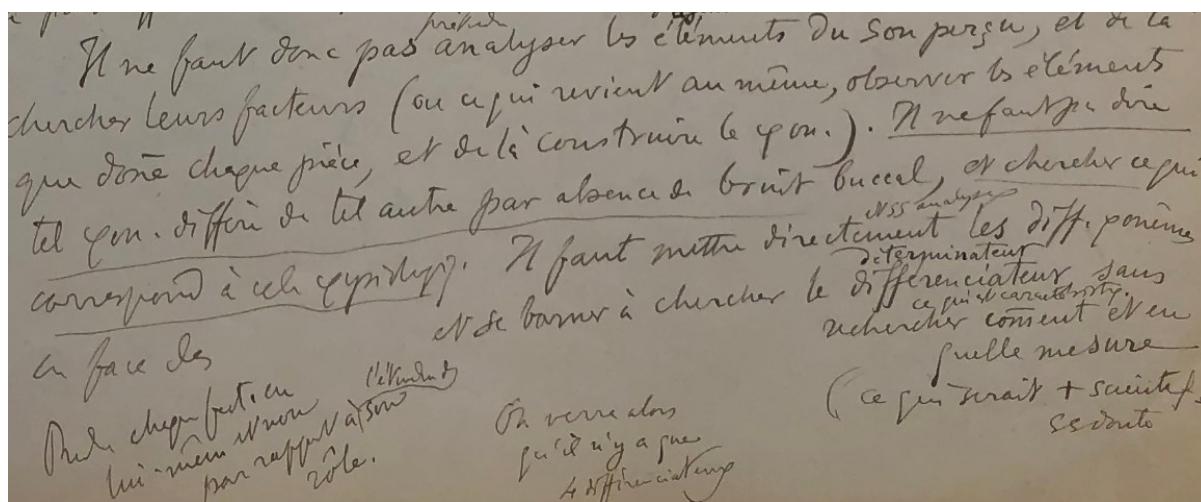 Il ne faut donc pas analyser les éléments du son perçu, et de là
chercher leurs facteurs (ou ce qui revient au même, observer les éléments
que doñe chaque pièce, et de là construire le φon.). Il ne faut pas dire
tel φon. diffère de tel autre par absence de bruit buccal, et chercher ce qui
correspond à cela
Il faut mettre directement les diff. φonèmes
en face des
et se borner à chercher le différenciateur sans
déterminateur
ce qui est
rechercher com̃ent et en
quelle mesure
(ce qui serait + scientif.
ss doute
chaque fact. en
lui-même et non
par rapport à son
rôle.
On verra alors
qu'il n'y a que
4 différenciateurs